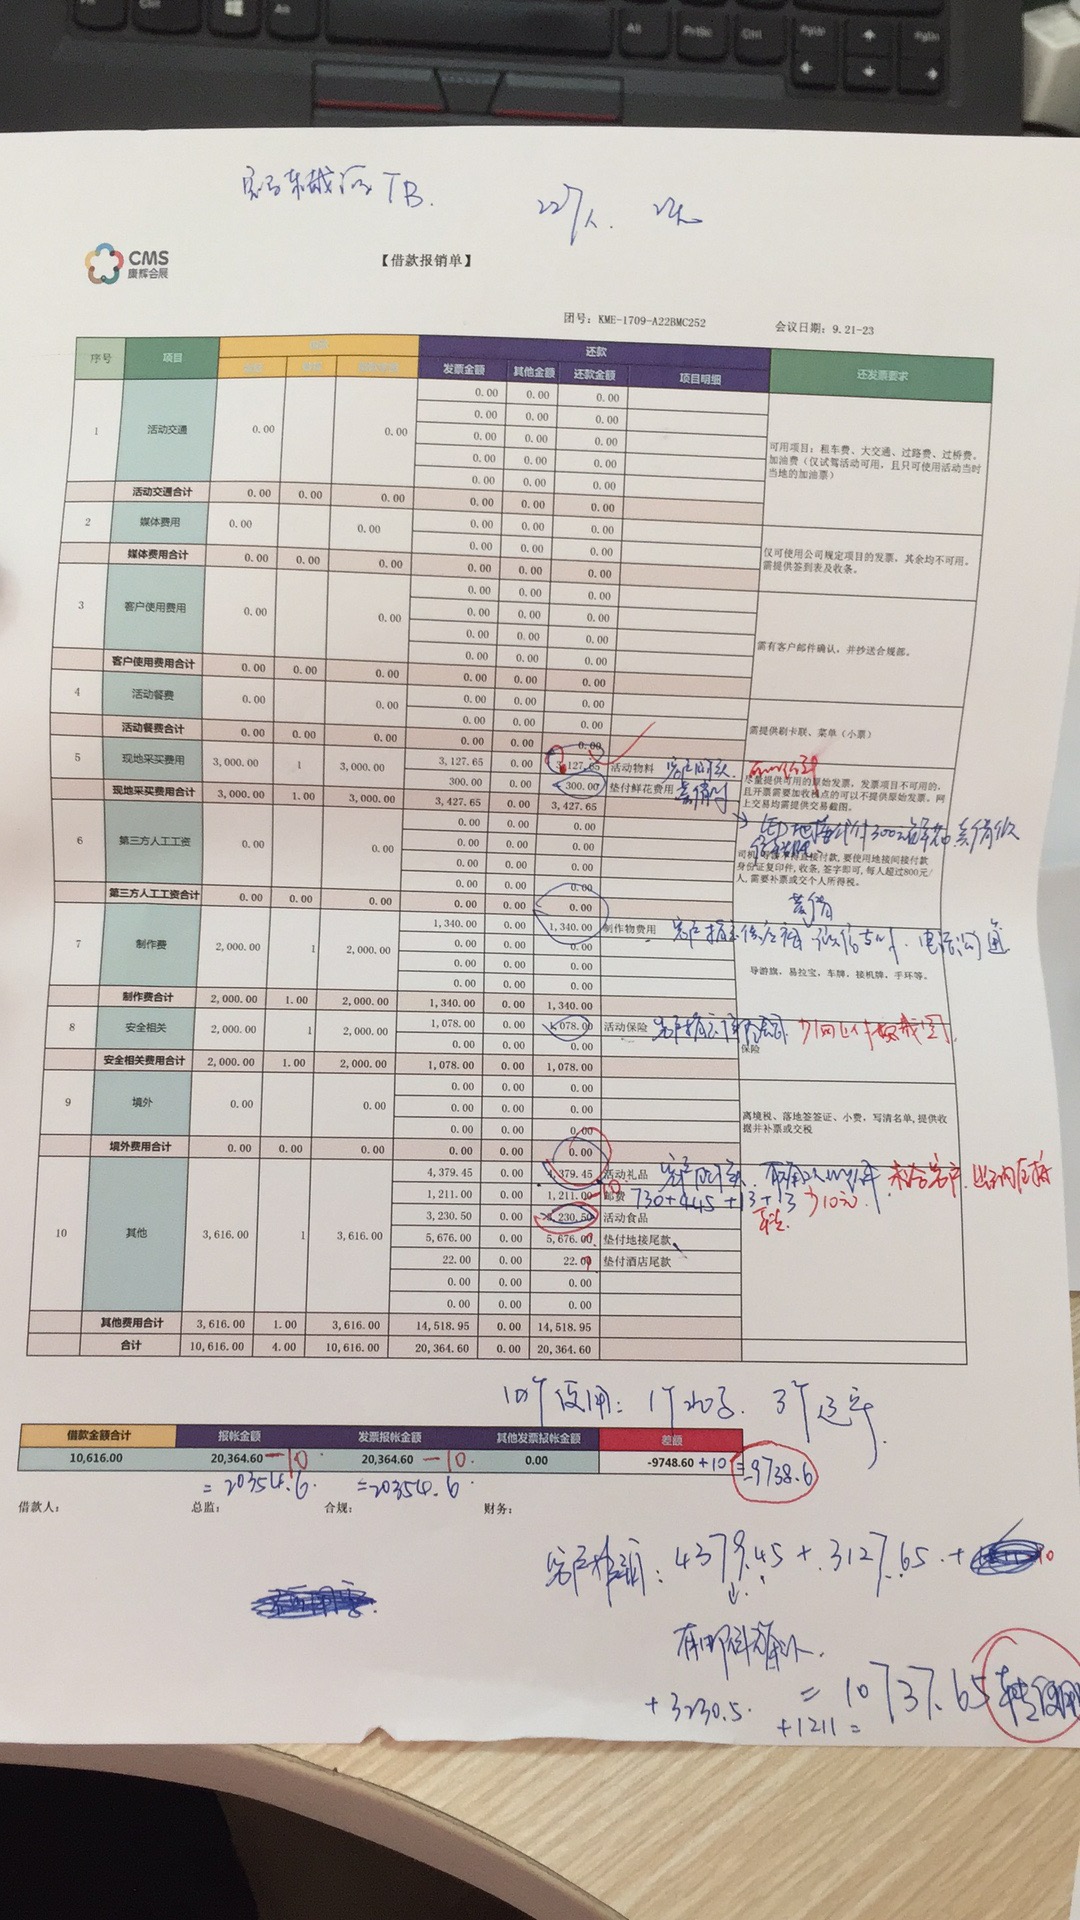 TB. 227人.
CMS
康辉会展
【借款报销单】
团号: KME-1709-A22BMC252 会议日期: 9.21-23
序号 项目 还款 还发票要求
发票金额 其他金额 还款金额 项目明细
0.00 0.00 0.00
0.00 0.00 0.00
1 活动交通 0.00 0.00 0.00 0.00 0.00
0.00 0.00 0.00
0.00 0.00 0.00
可用项目: 租车费、大交通、过路费、过桥费、
加油费 (仅试驾活动可用, 且只可使用活动当时
当地的加油票)
活动交通合计 0.00 0.00 0.00 0.00 0.00 0.00
2 媒体费用 0.00 0.00 0.00 0.00 0.00
0.00 0.00 0.00
仅可使用公司规定项目的发票, 其余均不可用,
需提供签到表及收条。
媒体费用合计 0.00 0.00 0.00 0.00 0.00 0.00
0.00 0.00 0.00
3 客户使用费用 0.00 0.00 0.00 0.00 0.00
0.00 0.00 0.00
0.00 0.00 0.00
需有客户邮件确认, 并抄送合规部。
客户使用费用合计 0.00 0.00 0.00 0.00 0.00 0.00
4 活动餐费 0.00 0.00 0.00 0.00 0.00
0.00 0.00 0.00
需提供刷卡联、菜单 (小票)
活动餐费合计 0.00 0.00 0.00 0.00 0.00 0.00
5 现地采买费用 3,000.00 1 3,000.00 3,127.65 0.00 3,127.65 活动物料
300.00 0.00 300.00 垫付鲜花费用
尽量提供可用的原始发票, 发票项目不可用的,
且开票需要加收税点的可以不提供原始发票。网
上交易均需提供交易截图。
现地采买费用合计 3,000.00 1.00 3,000.00 3,427.65 0.00 3,427.65
0.00 0.00 0.00
6 第三方人工工资 0.00 0.00 0.00 0.00 0.00
0.00 0.00 0.00
0.00 0.00 0.00
直接付款, 要使用地接间接付款
身份证复印件, 收条, 签字即可, 每人超过800元/
人, 需要补票或交个人所得税。
第三方人工工资合计 0.00 0.00 0.00 0.00 0.00 0.00
7 制作费 2,000.00 1 2,000.00 1,340.00 0.00 1,340.00 制作物费用
0.00 0.00 0.00
0.00 0.00 0.00
0.00 0.00 0.00
导游旗, 易拉宝, 车牌, 接机牌, 手环等。
制作费合计 2,000.00 1.00 2,000.00 1,340.00 0.00 1,340.00
8 安全相关 2,000.00 1 2,000.00 1,078.00 0.00 1,078.00 活动保险
0.00 0.00 0.00
保险
安全相关费用合计 2,000.00 1.00 2,000.00 1,078.00 0.00 1,078.00
0.00 0.00 0.00
9 境外 0.00 0.00 0.00 0.00 0.00
0.00 0.00 0.00
离境税、落地签签证、小费, 写清名单, 提供收
据并补票或交税
境外费用合计 0.00 0.00 0.00 0.00 0.00 0.00
4,379.45 0.00 4,379.45 活动礼品
1,211.00 0.00 1,211.00 邮费 730+445+13+13 少10元.
3,230.50 0.00 3,230.50 活动食品
10 其他 3,616.00 1 3,616.00 5,676.00 0.00 5,676.00 垫付地接尾款
22.00 0.00 22.00 垫付酒店尾款
0.00 0.00 0.00
0.00 0.00 0.00
其他费用合计 3,616.00 1.00 3,616.00 14,518.95 0.00 14,518.95
合计 10,616.00 4.00 10,616.00 20,364.60 0.00 20,364.60
借款金额合计 报帐金额 发票报帐金额 其他发票报帐金额 差额
10,616.00 20,364.60 -10. 20,364.60 -10. 0.00 -9748.60 +10 = -9738.6
=20354.6. =20354.6.
借款人: 总监: 合规: 财务:
4379.45 + 3127.65. +
+3230.5. +1211 = = 10737.65